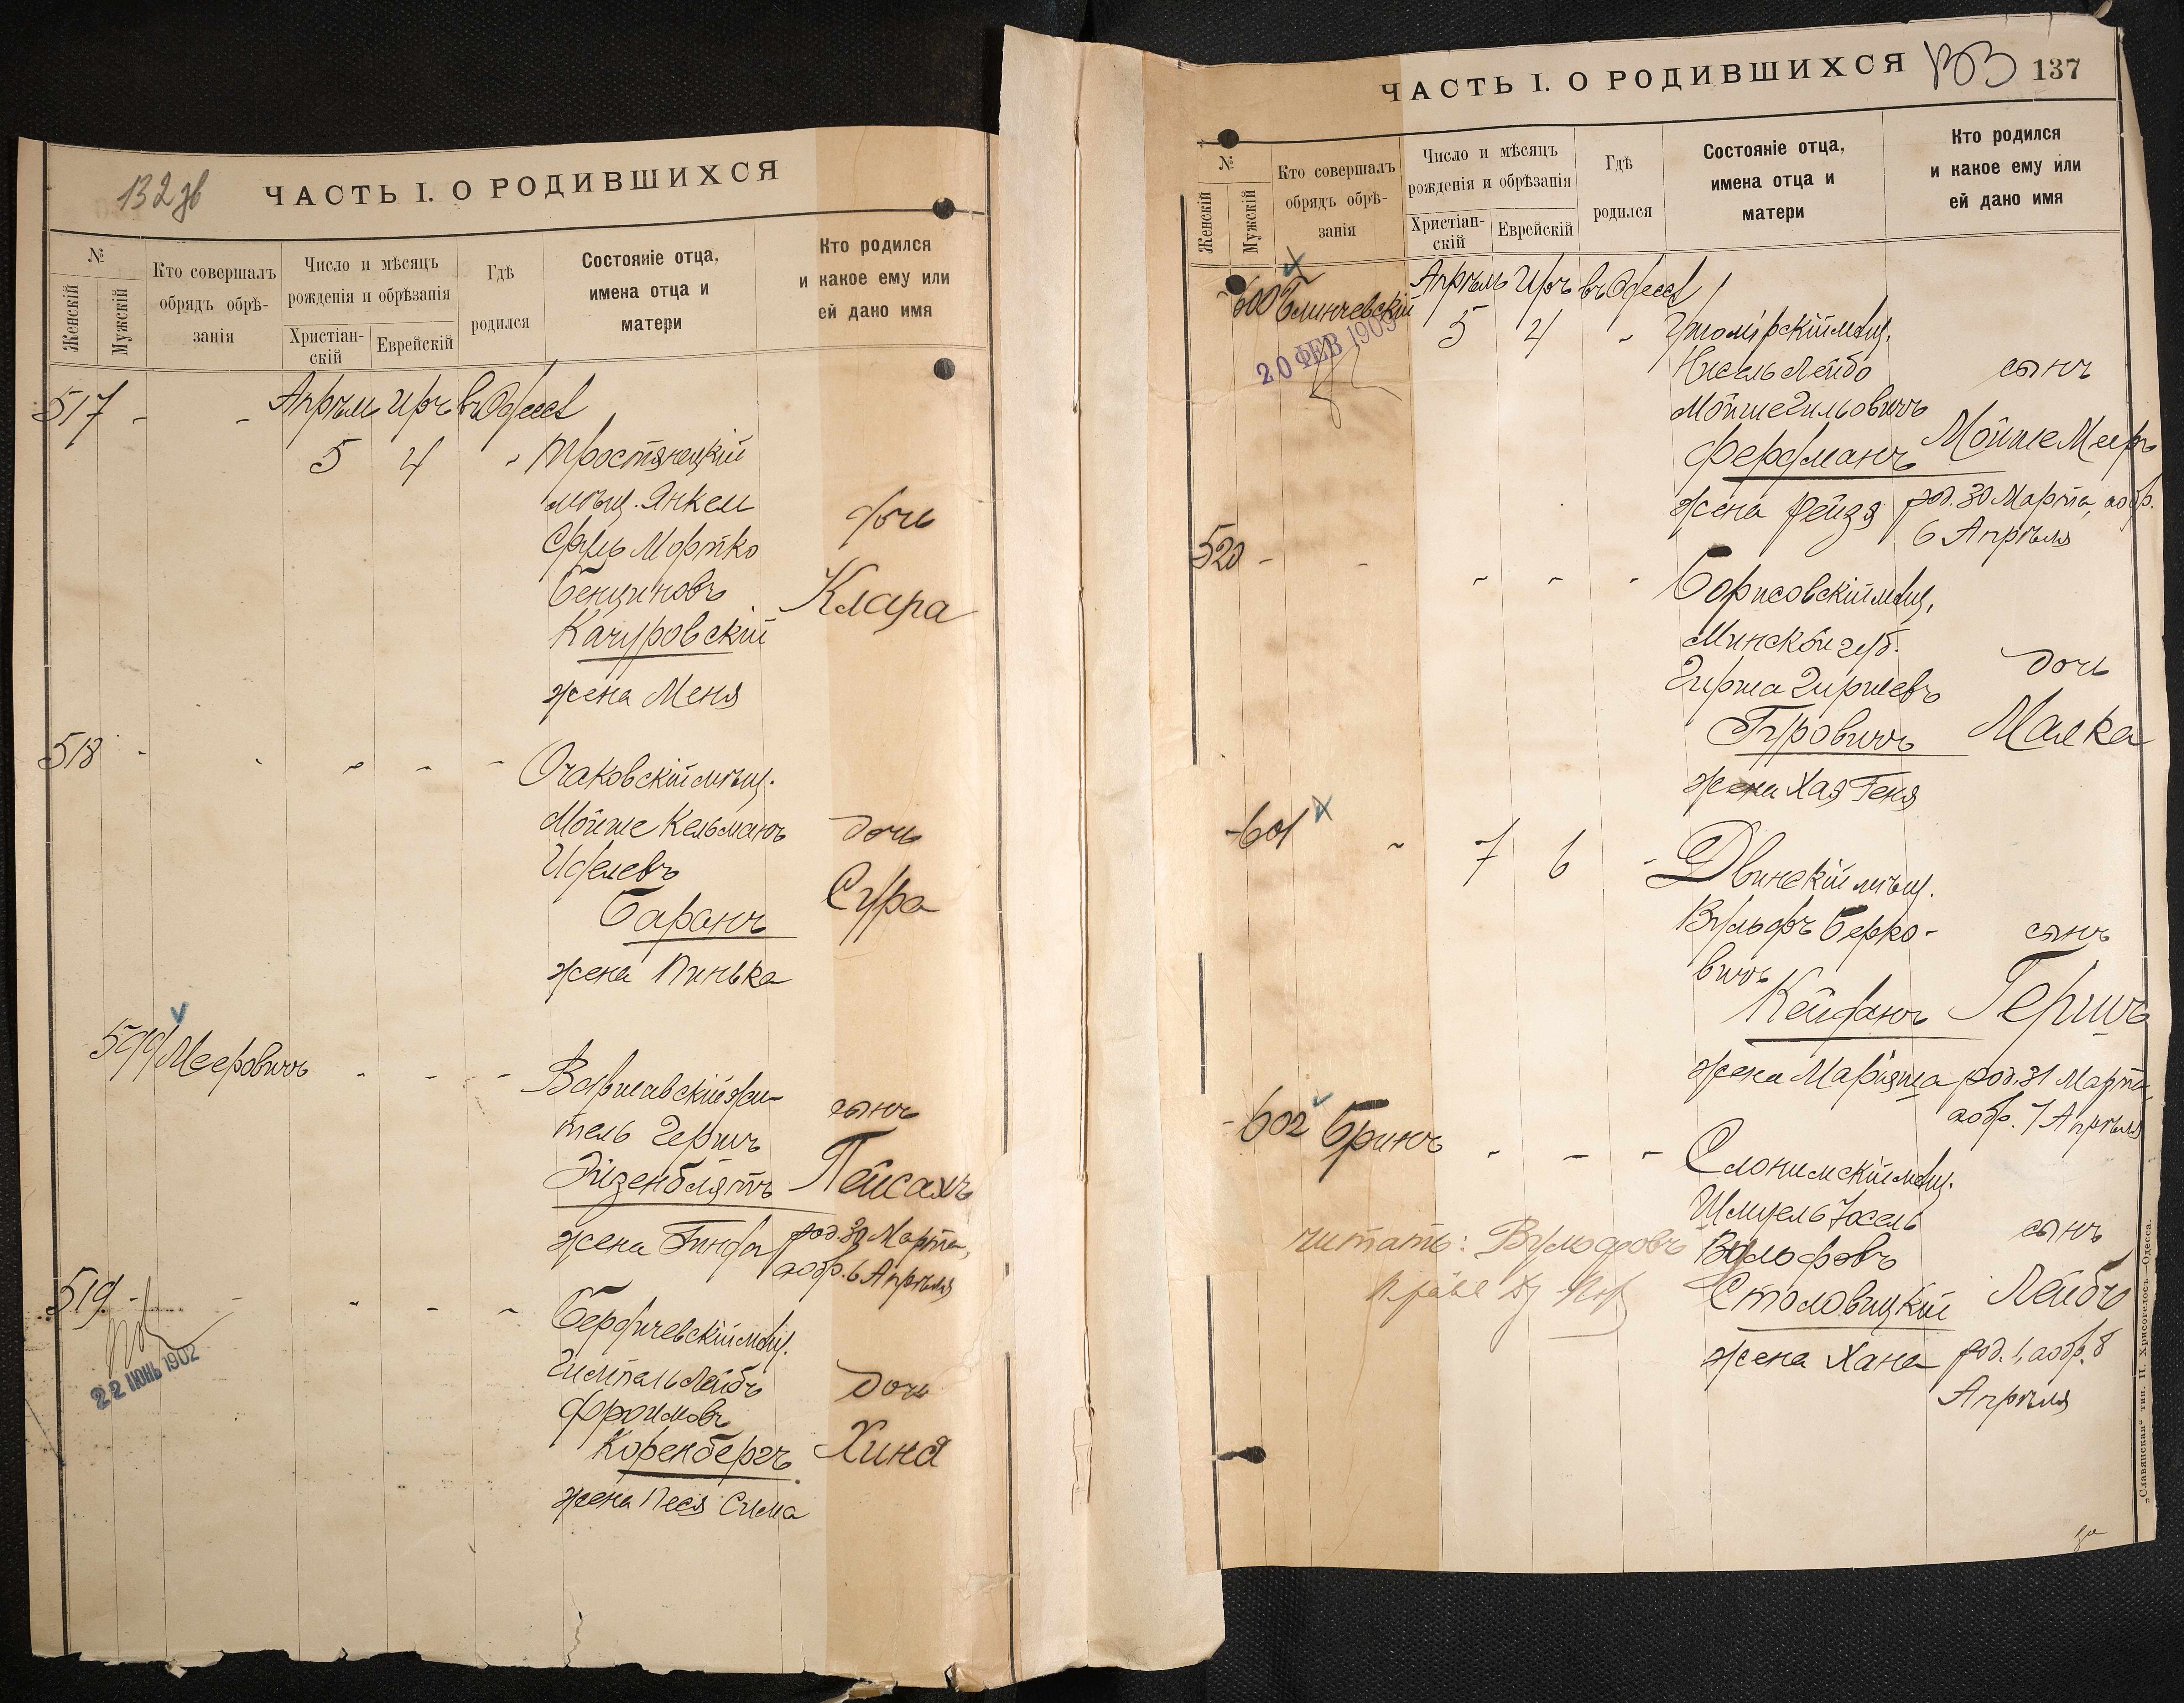 132 об
ЧАСТЬ I. О РОДИВШИХСЯ
№
Женскій
Мужскій
Кто совершалъ обрядъ обрѣ-занія
Число и мѣсяцъ рожденія и обрѣзанія
Христіан-скій
Еврейскій
Гдѣ родился
Состояніе отца, имена отца и матери
Кто родился и какое ему или ей дано имя
517 - - Апрѣль Иръ въ Одессѣ
5 4 " Тростянецкій
мѣщ. Янкель
Сруль Мортко
Бенционовъ
Качуровскій
жена Меня
дочь
Клара
518 - - " " "
Очаковскій мѣщ.
Мойше Кельманъ
Иделевъ
Баранъ
жена Пинька
дочь
Сура
599 Мееровичъ - - -
Варшавскій жи-
тель Гершъ
Эйзенблятъ
жена Гинда
сынъ
Пейсахъ
род. 30 Марта,
а обр. 6 Апрѣля
519 - - " " "
22 ИЮНЬ 1902
Бердичевскій мѣщ.
Гимпель Лейбъ
Фроимовъ
Коренбергъ
жена Песя Сима
дочь
Хина
ЧАСТЬ I. О РОДИВШИХСЯ
133
137
№
Женскій
Мужскій
Кто совершалъ обрядъ обрѣ-занія
Число и мѣсяцъ рожденія и обрѣзанія
Христіан-скій
Еврейскій
Гдѣ родился
Состояніе отца, имена отца и матери
Кто родился и какое ему или ей дано имя
- 600 Блинчевскій Апрѣль Иръ въ Одессѣ
20 ФЕВ 1909
5 4 "
Житомірскій мѣщ.
Нисель Лейбо
Мойше Гильовичъ
Фердманъ
жена Рейзя
сынъ
Мойше Мееръ
род. 30 Марта, а обр.
6 Апрѣля
520 - - " " "
Борисовскій мѣщ,
Минской губ.
Гирша Гиршевъ
Гуровичъ
жена Хая Геня
дочь
Малка
- 601 " 7 6 "
Двинскій мѣщ.
Вульфъ Берко-
вичъ
Кейфанъ
жена Маріяша
сынъ
Гершъ
род. 31 Марта,
а обр. 7 Апрѣля
- 602 Бринъ - - -
Слонимскій мѣщ.
Шмуель Іосель
Вольфовъ
Столовицкій
жена Хана
сынъ
Лейбъ
род. 1, а обр. 8
Апрѣля
читать: Вульфовъ
„Славянская“ тип. Н. Хрисогелосъ—Одесса.